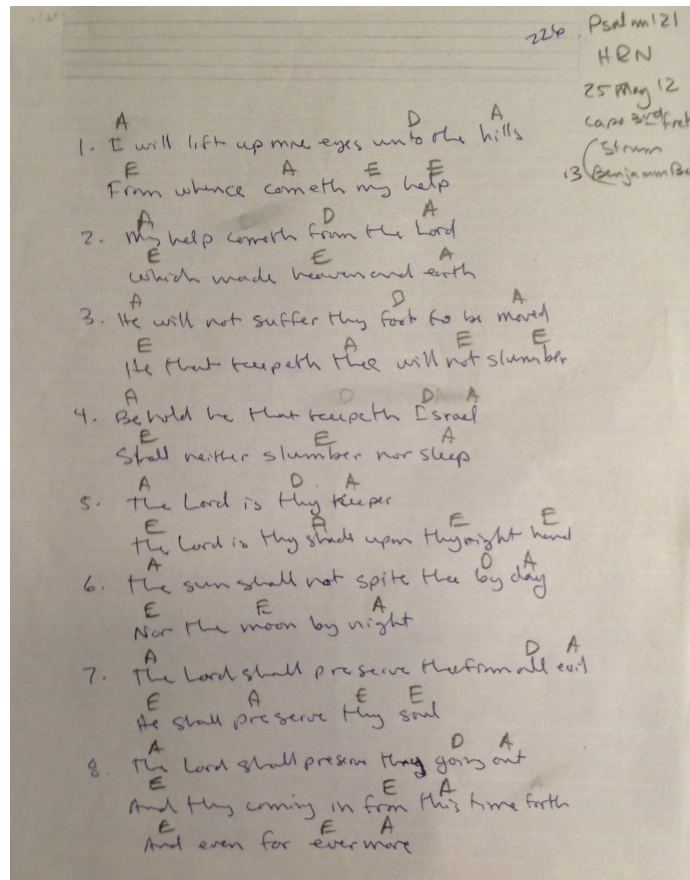 226. Psalm 121
HRN
25 May 12
capo 3rd fret
(Strum
13 Benjamin
A D A
1. I will lift up mne eyes unto the hills
E A E E
From whence cometh my help
A D A
2. My help cometh from the Lord
E E A
which made heaven and earth
A D A
3. He will not suffer thy foot to be moved
E A E E
He that keepeth thee will not slumber
A D D A
4. Behold he that keepeth Israel
E E A
Shall neither slumber nor sleep
A D A
5. The Lord is thy keeper
E A E E
the Lord is thy shade upon thy right hand
A D A
6. The sun shall not spite thee by day
E E A
Nor the moon by night
A D A
7. The Lord shall preserve thee from all evil
E A E E
He shall preserve thy soul
A D A
8. The Lord shall preserve thy going out
E E A A
And thy coming in from this time forth
E E A
And even for evermore